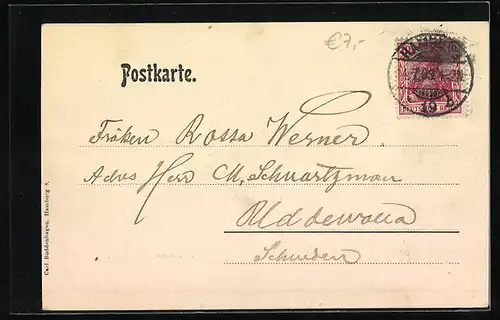 €7,-
Postkarte.
Fröken Rossa Werner.
Adres Herr M. Schwartzman
Uddewalla
Schweden
Carl Buddenhagen, Hamburg 3.